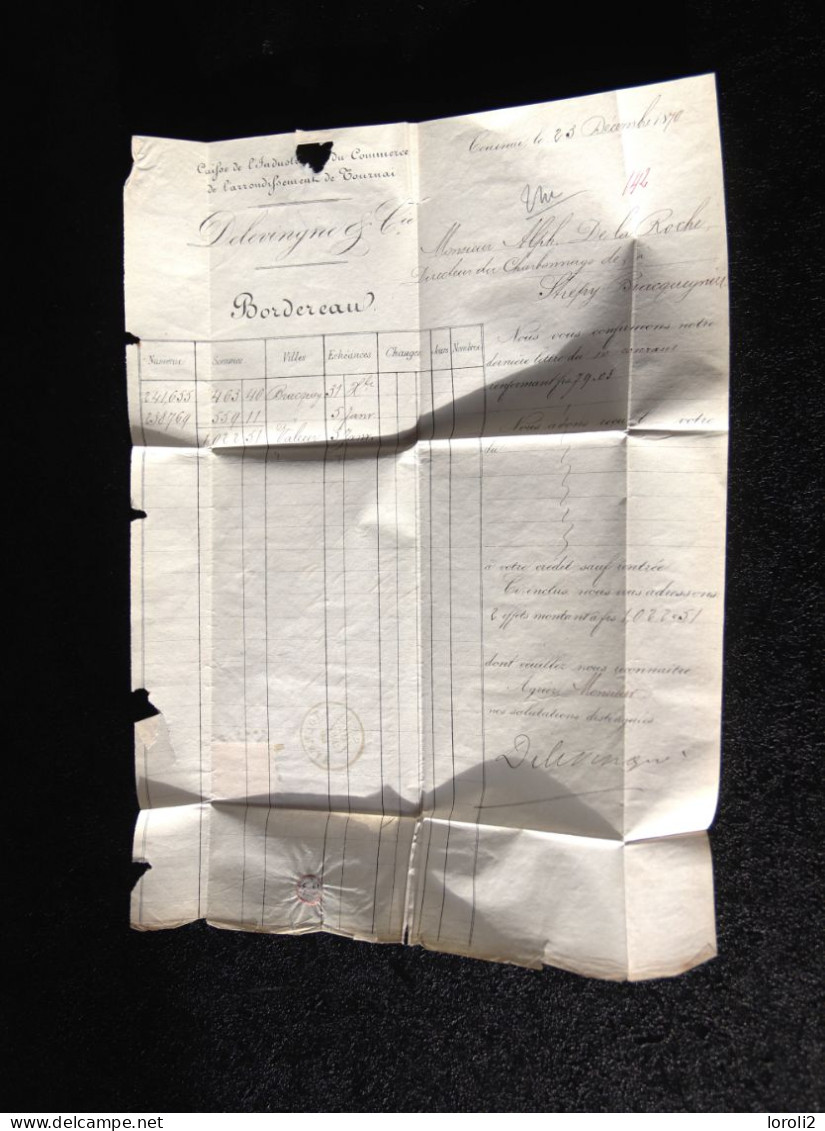 Caisse de l'Industrie du Commerce
de l'arrondissement de Tournai
Delevingne & Cie
Bordereau
le 23 Décembre 1870
142
Monsieur Alph. De la Roche
Directeur des Charbonnages de
Strépy Bracquegnies
Numéros Sommes Villes Echéances Changes Jours Nombres
241,655 463 40 Bracqueg 31 Xbre
238769 559 11 " 5 Janv
1,022 51 Valeur 5 Janv
Nous vous confirmons notre
dernière lettre du courant
confirmant frs 79.03
Nous avons votre
du
à votre crédit sauf rentrée
Ci-inclus nous vous adressons
2 effets montant à frs 1,022.51
dont veuillez nous reconnaître
Agréez Monsieur
nos salutations distinguées
Delevingne
loroli2